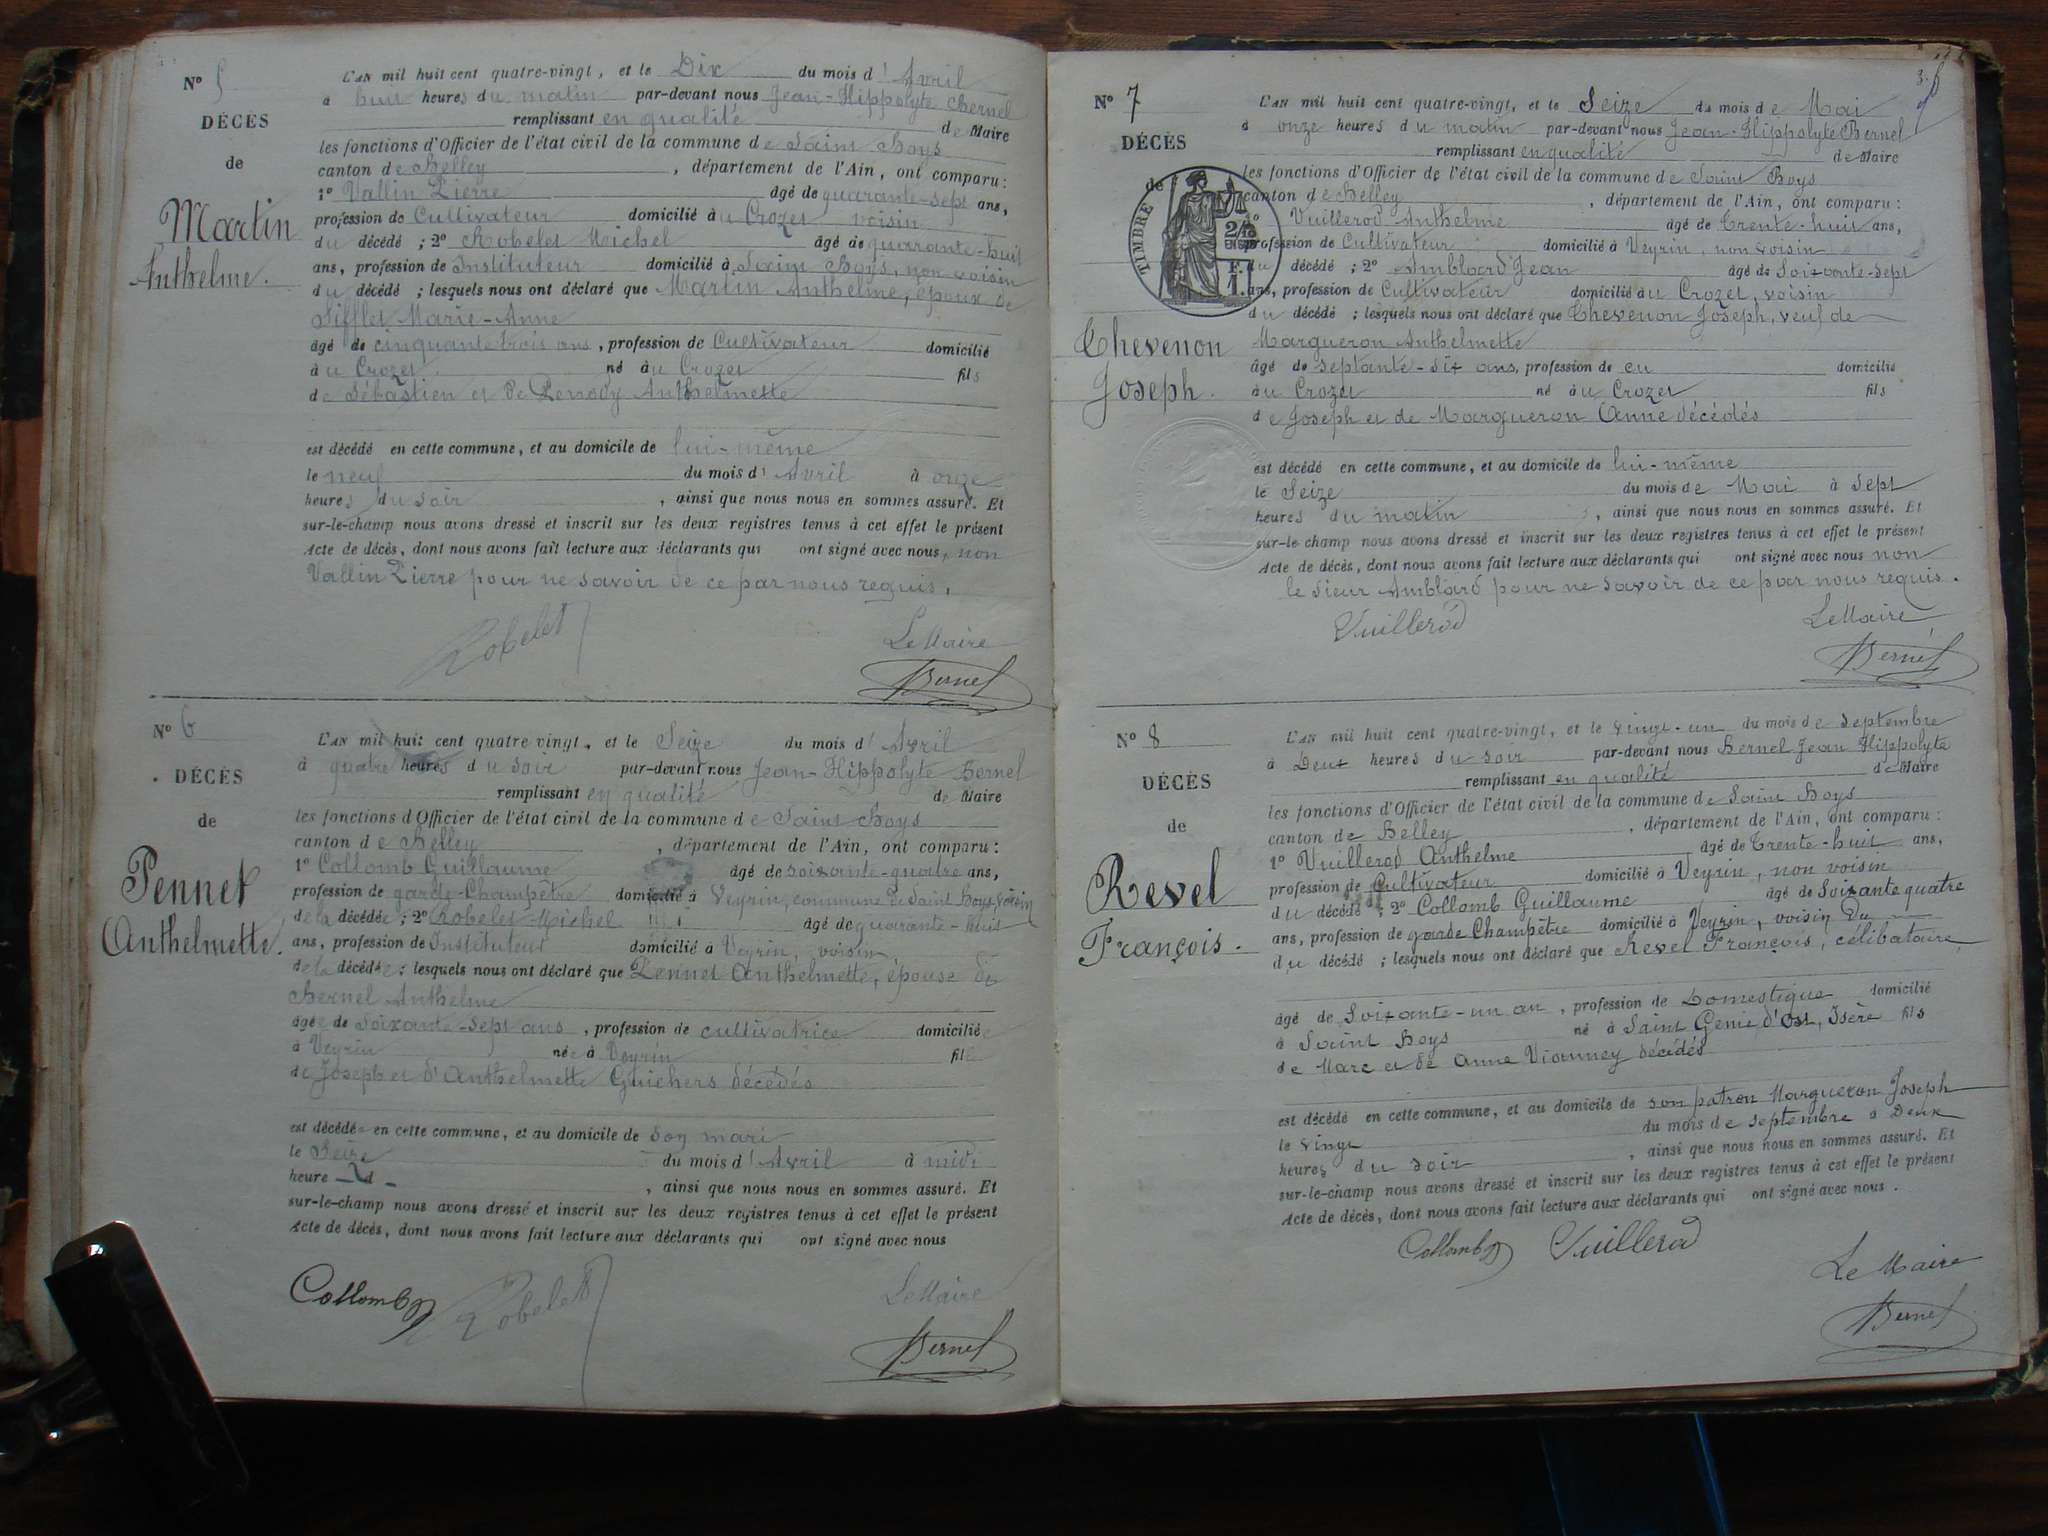 N° 5
DÉCÈS
de
Martin
Anthelme.
L'AN mil huit cent quatre-vingt, et le Dix du mois d'Avril
à huit heures du matin par-devant nous Jean-Hippolyte Bernel
remplissant en qualité de Maire
les fonctions d'Officier de l'état civil de la commune de Saint Boys
canton de Belley, département de l'Ain, ont comparu :
1° Vallin Pierre âgé de quarante-sept ans,
profession de Cultivateur domicilié au Crozet voisin
du décédé ; 2° Robelet Michel âgé de quarante-huit
ans, profession de Instituteur domicilié à Saint Boys, non voisin
du décédé ; lesquels nous ont déclaré que Martin Anthelme, époux de
Sifflet Marie-Anne
âgé de cinquante trois ans, profession de Cultivateur domicilié
au Crozet né au Crozet fils
de Sébastien et de Perrody Anthelmette
est décédé en cette commune, et au domicile de lui-même
le neuf du mois d'Avril à onze
heures du soir, ainsi que nous nous en sommes assuré. Et
sur-le-champ nous avons dressé et inscrit sur les deux registres tenus à cet effet le présent
Acte de décès, dont nous avons fait lecture aux déclarants qui ont signé avec nous, non
Vallin Pierre pour ne savoir de ce par nous requis.
Robelet
Le Maire
Bernel
N° 6
DÉCÈS
de
Pennet
Anthelmette.
L'AN mil huit cent quatre-vingt, et le Seize du mois d'Avril
à quatre heures du soir par-devant nous Jean-Hippolyte Bernel
remplissant en qualité de Maire
les fonctions d'Officier de l'état civil de la commune de Saint Boys
canton de Belley, département de l'Ain, ont comparu :
1° Collomb Guillaume âgé de soixante-quatre ans,
profession de garde-Champêtre domicilié à Veyrin, commune de Saint Boys, voisin
de la décédée ; 2° Robelet Michel âgé de quarante-huit
ans, profession de Instituteur domicilié à Veyrin, voisin
de la décédée ; lesquels nous ont déclaré que Pennet Anthelmette, épouse de
Bernel Anthelme
âgée de Soixante-sept ans, profession de cultivatrice domiciliée
à Veyrin née à Veyrin fille
de Joseph et d'Anthelmette Guichers décédés
est décédée en cette commune, et au domicile de son mari
le Seize du mois d'Avril à midi
heure d, ainsi que nous nous en sommes assuré. Et
sur-le-champ nous avons dressé et inscrit sur les deux registres tenus à cet effet le présent
Acte de décès, dont nous avons fait lecture aux déclarants qui ont signé avec nous
Collomb
Robelet
Le Maire
Bernel
N° 7
DÉCÈS
de
TIMBRE
2/10
EN SUS
F.
1.
Chevenon
Joseph.
L'AN mil huit cent quatre-vingt, et le Seize du mois de Mai
à onze heures du matin par-devant nous Jean-Hippolyte Bernel
remplissant en qualité de Maire
les fonctions d'Officier de l'état civil de la commune de Saint Boys
canton de Belley, département de l'Ain, ont comparu :
1° Vuillerod Anthelme âgé de Trente-huit ans,
profession de Cultivateur domicilié à Veyrin, non voisin
du décédé ; 2° Amblard Jean âgé de Soixante-sept
ans, profession de Cultivateur domicilié au Crozet, voisin
du décédé ; lesquels nous ont déclaré que Chevenon Joseph, veuf de
Margueron Anthelmette
âgé de septante-six ans, profession de cu domicilié
au Crozet né au Crozet fils
de Joseph et de Margueron Anne décédés
est décédé en cette commune, et au domicile de lui-même
le Seize du mois de Mai à sept
heures du matin, ainsi que nous nous en sommes assuré. Et
sur-le-champ nous avons dressé et inscrit sur les deux registres tenus à cet effet le présent
Acte de décès, dont nous avons fait lecture aux déclarants qui ont signé avec nous non
le sieur Amblard pour ne savoir de ce par nous requis.
Vuillerod
Le Maire
Bernel
N° 8
DÉCÈS
de
Revel
François.
L'AN mil huit cent quatre-vingt, et le vingt-un du mois de septembre
à Deux heures du soir par-devant nous Bernel Jean Hippolyte
remplissant en qualité de Maire
les fonctions d'Officier de l'état civil de la commune de Saint Boys
canton de Belley, département de l'Ain, ont comparu :
1° Vuillerod Anthelme âgé de Trente-huit ans,
profession de Cultivateur domicilié à Veyrin, non voisin
du décédé ; 2° Collomb Guillaume âgé de Soixante quatre
ans, profession de garde Champêtre domicilié à Veyrin, voisin du
du décédé ; lesquels nous ont déclaré que Revel François, célibataire
âgé de Soixante-un an, profession de Domestique domicilié
à Saint Boys né à Saint Genie d'Ost, Isère fils
de Marc et de Anne Vianney décédés
est décédé en cette commune, et au domicile de son patron Margueron Joseph
le vingt du mois de septembre à Deux
heures du soir, ainsi que nous nous en sommes assuré. Et
sur-le-champ nous avons dressé et inscrit sur les deux registres tenus à cet effet le présent
Acte de décès, dont nous avons fait lecture aux déclarants qui ont signé avec nous.
Collomb Vuillerod
Le Maire
Bernel